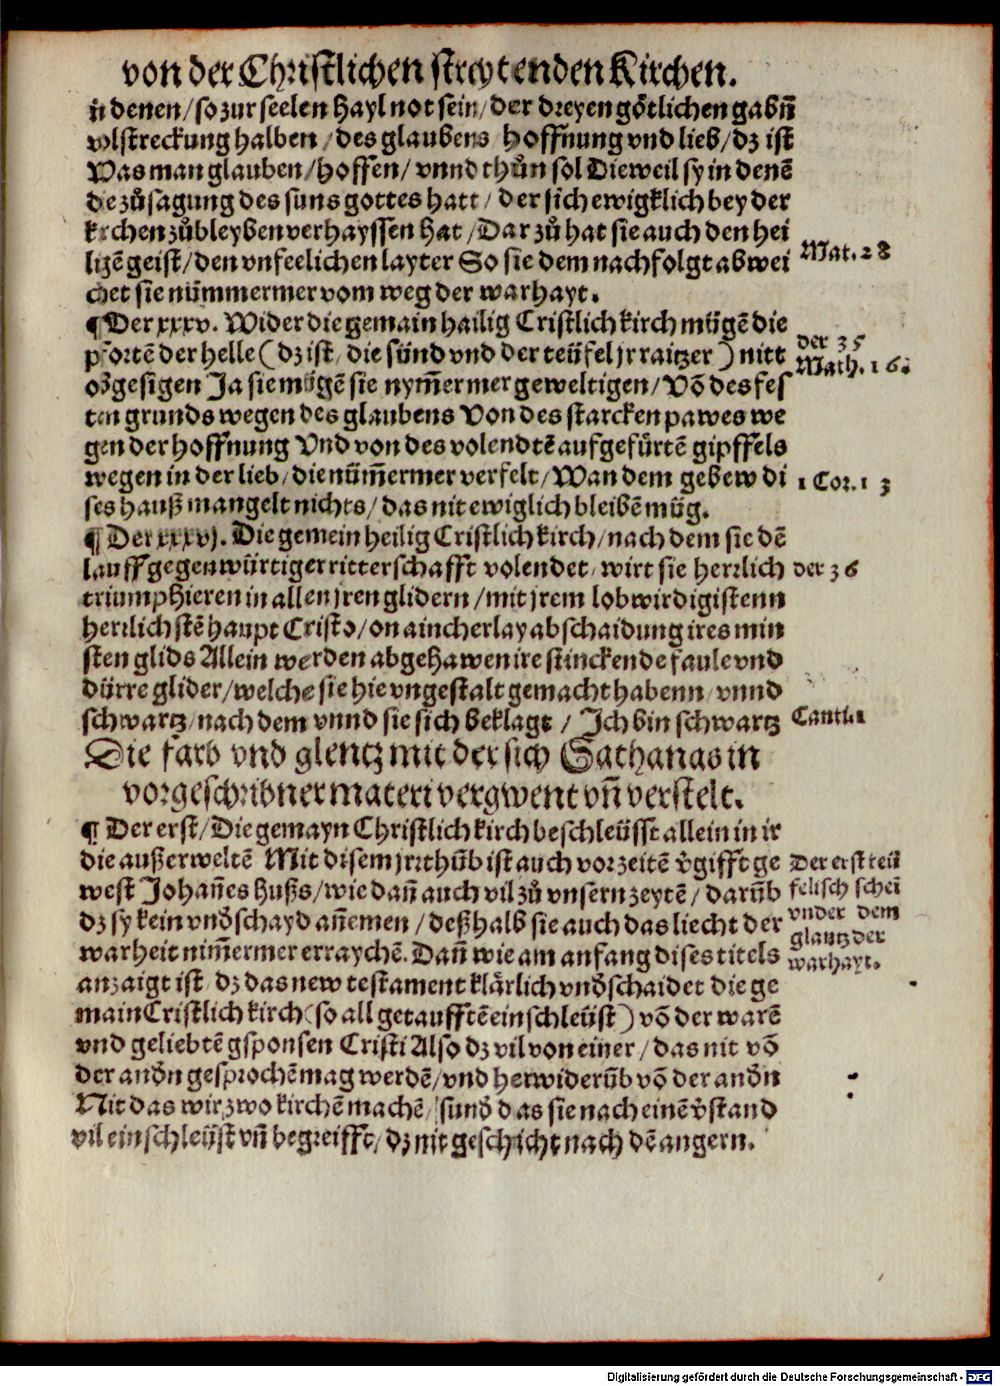 von der Christlichen streytenden Kirchen.
in denen / so zur seelen hayl not sein / der dreyen gőtlichen gabñ
volstreckung halben / des glaubens hoffnung vnd lieb / dz ist
Was man glauben / hoffen / vnnd thůn sol Dieweil sy in denē
die zůsagung des suns gottes hatt / der sich ewigklich bey der
kirchen zůbleyben verhayssen hat / Darzů hat sie auch den hei
ligē geist / den vnfeelichen layter So sie dem nachfolgt abwei
chet sie nümmermer vom weg der warhayt.
Mat. 28
¶ Der xxxv. Wider die gemain hailig Cristlich kirch mügē die
pfortē der helle (dz ist / die sünd vnd der teüfel jr raitzer) nitt
obgesigen Ja sie mügē sie nym̄er mer geweltigen / Võ des fes
ten grunds wegen des glaubens Von des starcken pawes we
gen der hoffnung Vnd von des volendtē aufgefürtē gipffels
wegen in der lieb / die nüm̄ermer verfelt / Wan dem gebew di
ses hauß mangelt nichts / das nit ewiglich bleibē müg.
der 35
Math. 16.
1 Cor. 13
¶ Der xxxvj. Die gemein heilig Cristlich kirch / nach dem sie dē
lauff gegenwürtiger ritterschafft volendet / wirt sie herrlich
triumphieren in allen jren glidern / mit jrem lobwirdigistenn
herrlichstē haupt Cristo / on aincherlay abschaidung ires min
sten glids Allein werden abgehawen ire stinckende faule vnd
dürre glider / welche sie hie vngestalt gemacht habenn / vnnd
schwartz / nach dem vnnd sie sich beklagt / Ich bin schwartz
der 36
Canti. 1
Die farb vnd glentz mit der sich Sathanas in
vorgeschribner materi vergwent vñ verstelt.
¶ Der erst / Die gemayn Christlich kirch beschleüsst allein in ir
die außerweltē Mit disem jrrthūb ist auch vorzeitē v̄gifft ge
west Johañes Hußs / wie dañ auch vil zů vnsern zeytē / darūb
dz sy kein vnd̄schayd añemen / deßhalb sie auch das liecht der
warheit nim̄ermer erraychē. Dañ wie am anfang dises titels
anzaigt ist / dz das new testament klårlich vnd̄schaidet die ge
main Cristlich kirch (so all getaufftē einschleüst) võ der warē
vnd geliebtē gsponsen Cristi Also dz vil von einer / das nit võ
der and̄n gesprochē mag werdē / vnd herwiderūb võ der and̄n
Nit das wir zwo kirchē machē / sund̄ das sie nach einē v̄stand
vil einschleüst vñ begreifft / dz nit geschicht nach dē angern.
Der erst teü
felisch scheī
vnder dem
glantz der
warhayt.
Digitalisierung gefördert durch die Deutsche Forschungsgemeinschaft - DFG